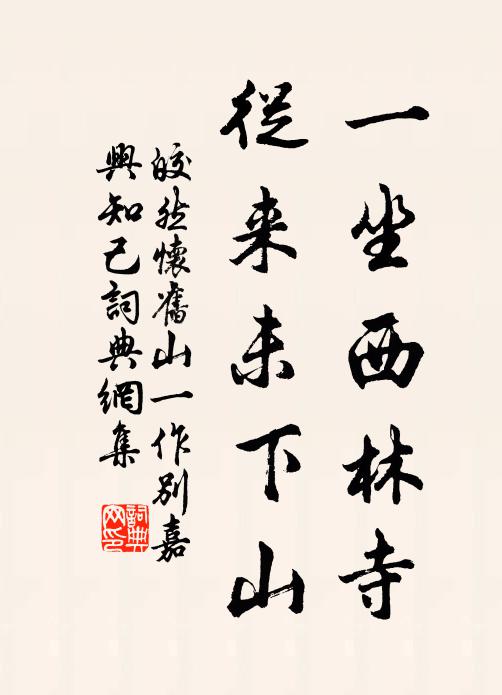 一坐西林寺
從来未下山
皎然懷舊山一作別嘉
興知己詞典網集
詞典
网印